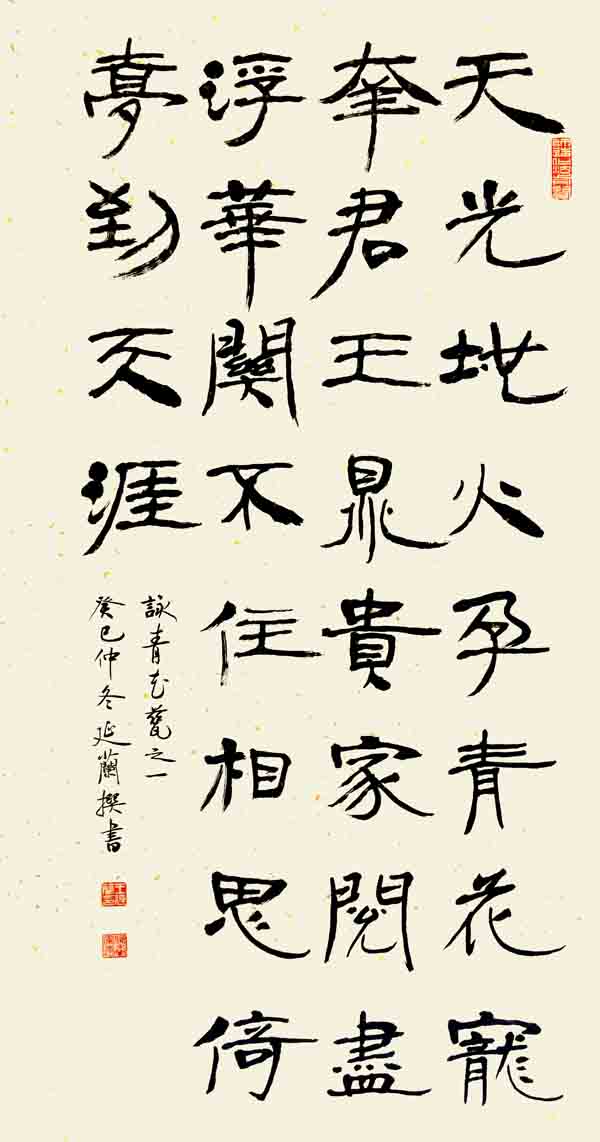 天光地火孕青花寵
幸君王鼎貴家閱盡
浮華關不住相思倚
夢到天涯
詠青花甆之一
癸巳仲冬延蘭撰書